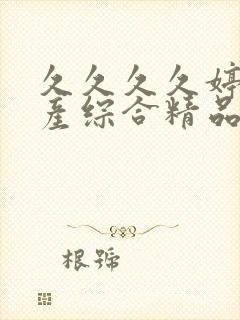 久久久久婷
產综合精品
根號